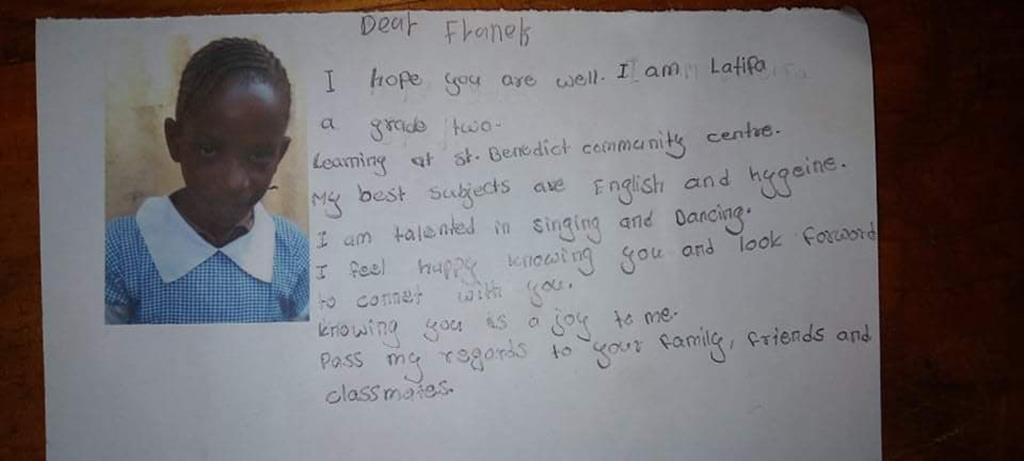 Dear Franek
I hope you are well. I am Latifa
a grade two.
Learning at St. Benedict community centre.
My best subjects are English and hygeine.
I am talented in singing and Dancing.
I feel happy knowing you and look forword
to connet with you.
knowing you is a joy to me.
Pass my regards to your family, friends and
classmates.